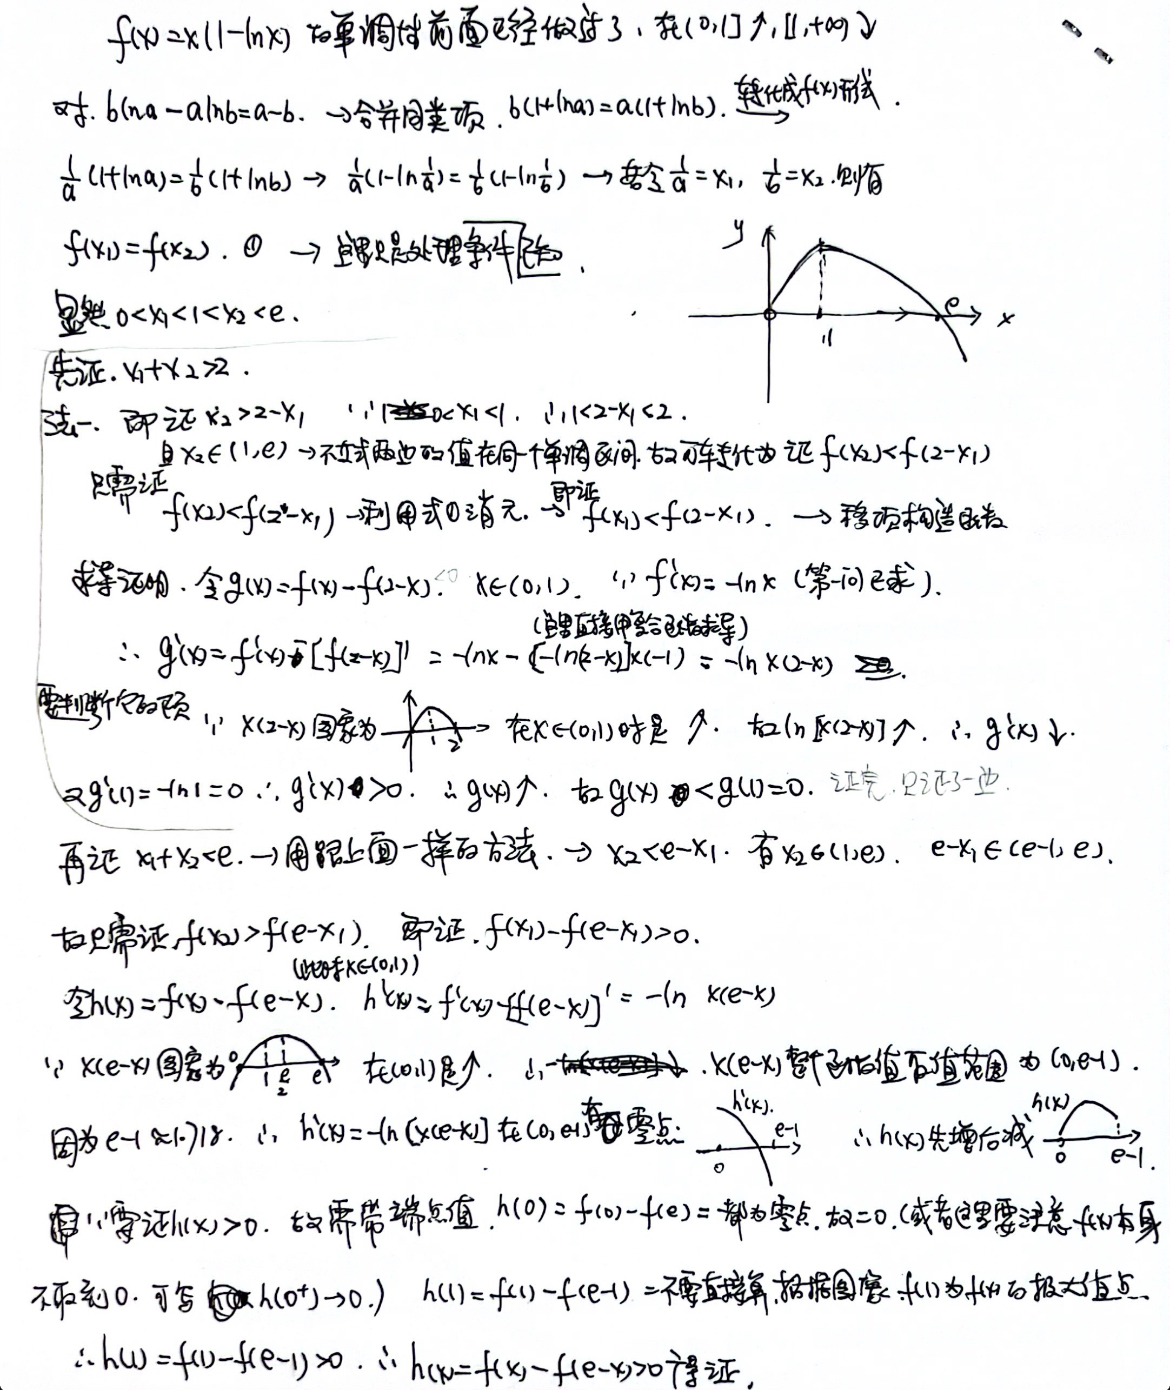 f(x)=x(1-lnx) 的单调性前面已经做过了，在(0,1]↑,[1,+∞)↓
对. blna-alnb=a-b. →合并同类项. b(1+lna)=a(1+lnb). 转化成f(x)形式
1/a(1+lna)=1/b(1+lnb) → 1/a(1-ln1/a)=1/b(1-ln1/b) → 若令1/a=x₁, 1/b=x₂.则有
f(x₁)=f(x₂). ① → 这里只是处理条件已知.
y
e
x
1
显然 0<x₁<1<x₂<e.
先证. x₁+x₂>2.
法一. 即证 x₂>2-x₁ ∵ 0<x₁<1. ∴1<2-x₁<2.
且x₂∈(1,e) →不等式两边的值在同一个单调区间.故可转化为证 f(x₂)<f(2-x₁)
只需证 f(x₂)<f(2-x₁) →利用式①消元. →即证 f(x₁)<f(2-x₁). → 移项构造函数
求导证明. 令g(x)=f(x)-f(2-x).<0 x∈(0,1). ∵ f'(x)=-lnx (第一问已求).
(这里直接用复合函数求导)
∴ g'(x)=f'(x)-[f(2-x)]' = -lnx-[-ln(2-x)]x(-1) = -ln x(2-x)
要判断的项 ∵ x(2-x)图象为 1 2 在x∈(0,1)时是↑. 故ln[x(2-x)]↑. ∴ g'(x)↓.
又g'(1)=-ln1=0 ∴ g'(x)>0. ∴ g(x)↑. 故g(x)<g(1)=0. 证完.只证了一边.
再证 x₁+x₂<e. →用跟上面一样的方法. → x₂<e-x₁. 有x₂∈(1,e). e-x₁∈(e-1,e).
故只需证f(x₂)>f(e-x₁). 即证.f(x₁)-f(e-x₁)>0.
(此时x∈(0,1))
令h(x)=f(x)-f(e-x). h'(x)=f'(x)-[f(e-x)]'=-ln x(e-x)
∵ x(e-x)图象为 0 1 e/2 e 在(0,1)是↑. ∴ x(e-x)整个函数值的值范围为(0,e-1).
因为e-1≈1.718. ∴ h'(x)=-ln[x(e-x)]在(0,e-1)有零点: h'(x). 0 e-1 ∴h(x)先增后减 h(x) 0 e-1.
∵要证h(x)>0. 故需带端点值. h(0)=f(0)-f(e)=都为零点.故=0.(或者这里要注意f(x)本身
不取到0.可写h(0⁺)→0.) h(1)=f(1)-f(e-1)=不需直接算.根据图象.f(1)为f(x)的极大值点.
∴h(1)=f(1)-f(e-1)>0. ∴ h(x)=f(x)-f(e-x)>0得证.